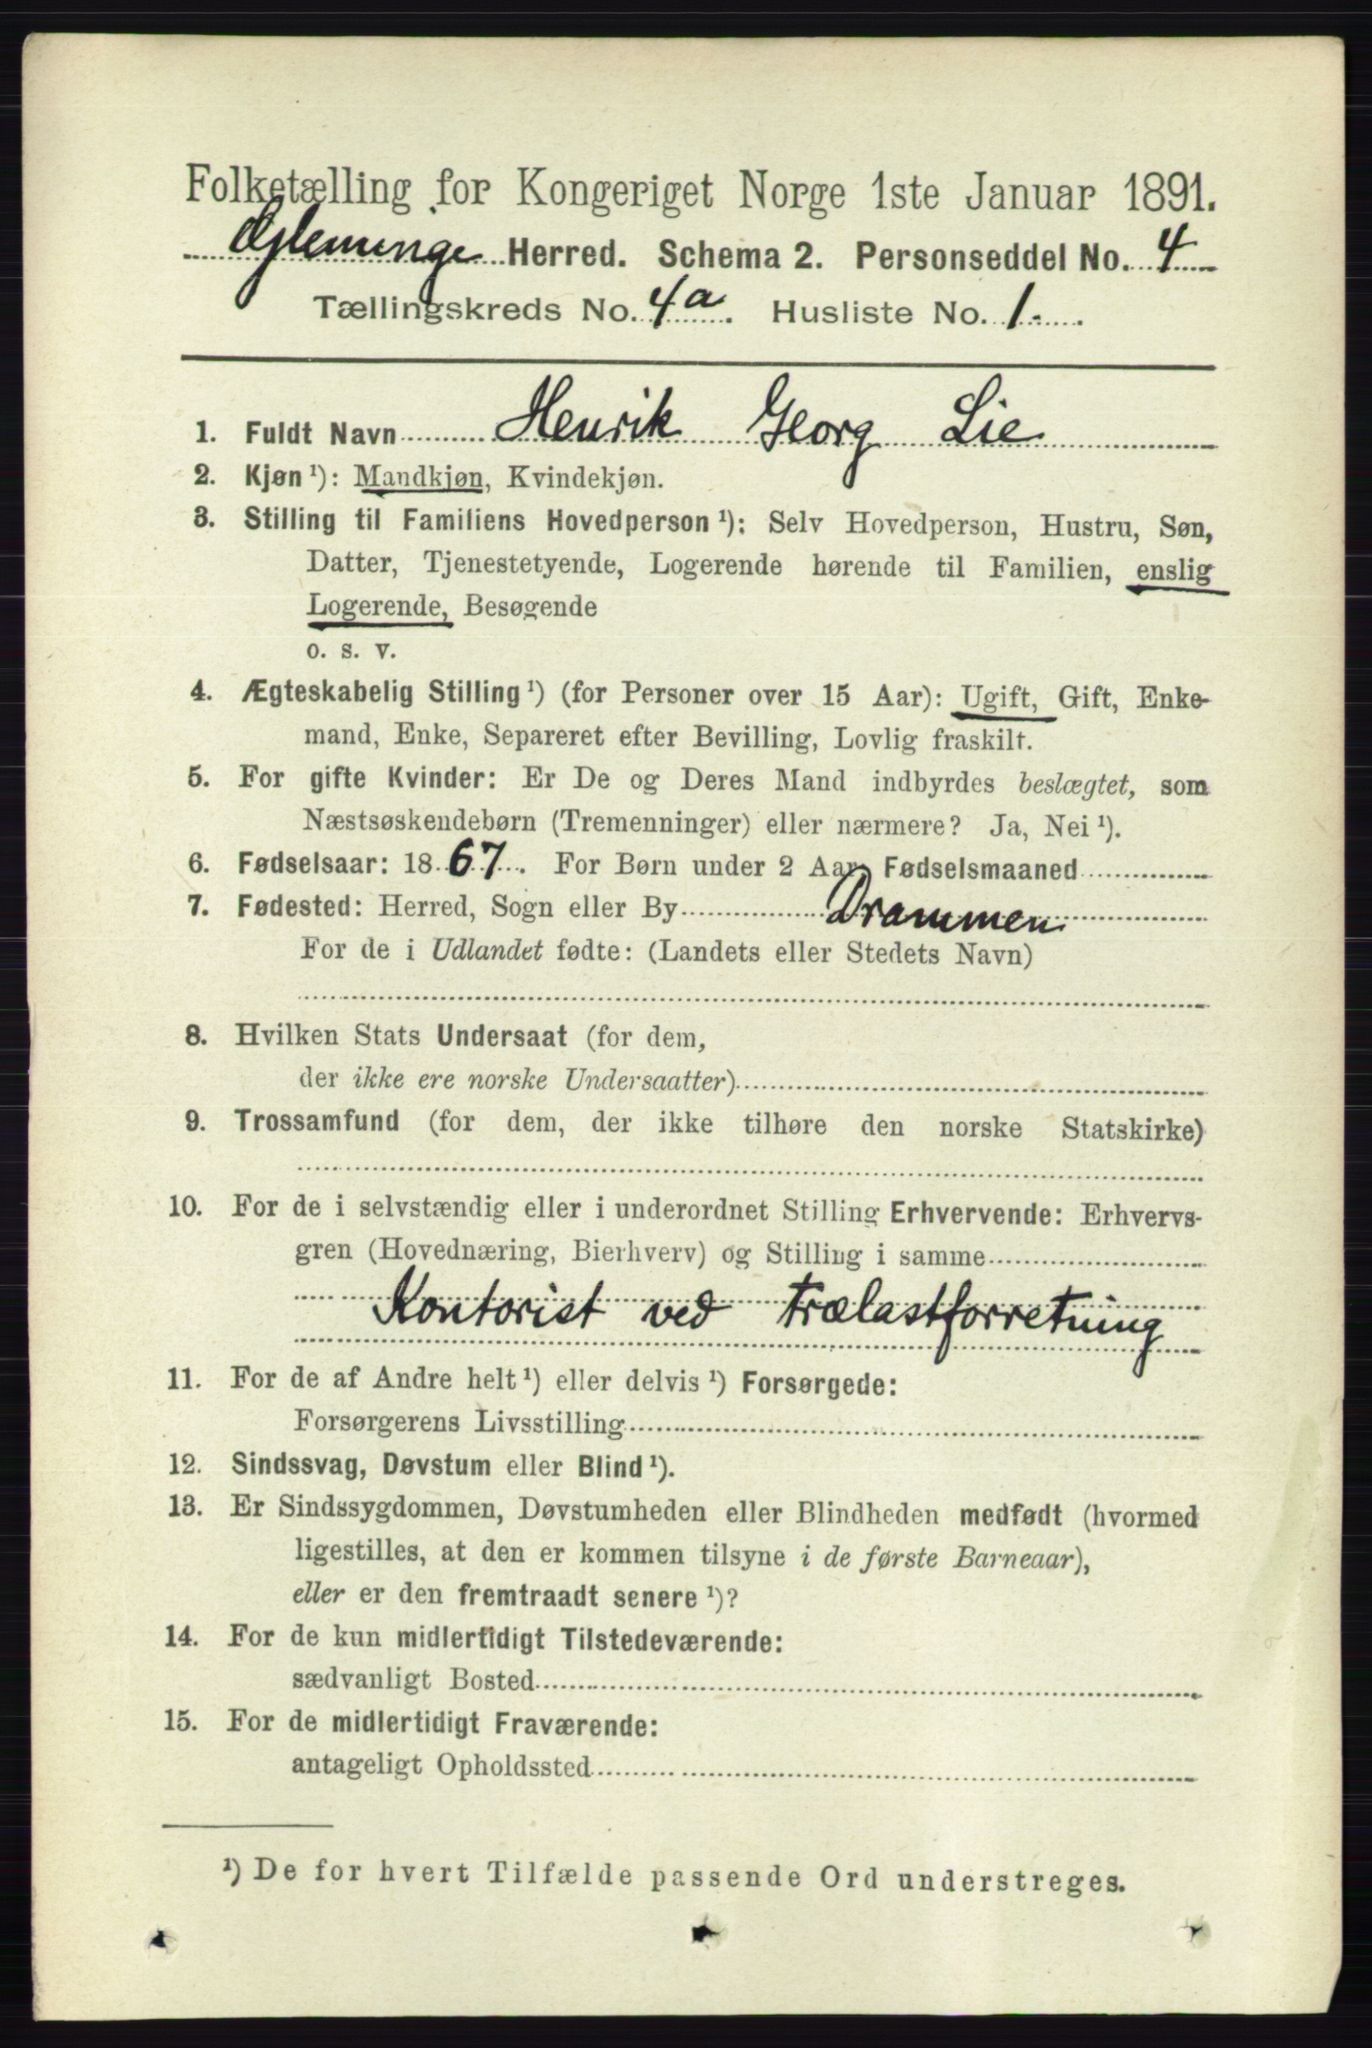 Folketælling for Kongeriget Norge 1ste Januar 1891.
Glemminge Herred. Schema 2. Personseddel No. 4
Tællingskreds No. 4a. Husliste No. 1.
1. Fuldt Navn Henrik Georg Lie
2. Kjøn¹): Mandkjøn, Kvindekjøn.
3. Stilling til Familiens Hovedperson¹): Selv Hovedperson, Hustru, Søn,
Datter, Tjenestetyende, Logerende hørende til Familien, enslig
Logerende, Besøgende
o. s. v.
4. Ægteskabelig Stilling¹) (for Personer over 15 Aar): Ugift, Gift, Enke-
mand, Enke, Separeret efter Bevilling, Lovlig fraskilt.
5. For gifte Kvinder: Er De og Deres Mand indbyrdes beslægtet, som
Næstsøskendebørn (Tremenninger) eller nærmere? Ja, Nei¹).
6. Fødselsaar: 1867. For Børn under 2 Aar, Fødselsmaaned
7. Fødested: Herred, Sogn eller By Drammen
For de i Udlandet fødte: (Landets eller Stedets Navn)
8. Hvilken Stats Undersaat (for dem,
der ikke ere norske Undersaatter)
9. Trossamfund (for dem, der ikke tilhøre den norske Statskirke)
10. For de i selvstændig eller i underordnet Stilling Erhvervende: Erhvervs-
gren (Hovednæring, Bierhverv) og Stilling i samme
Kontorist ved trælastforretning
11. For de af Andre helt¹) eller delvis¹) Forsørgede:
Forsørgerens Livsstilling
12. Sindssvag, Døvstum eller Blind¹).
13. Er Sindssygdommen, Døvstumheden eller Blindheden medfødt (hvormed
ligestilles, at den er kommen tilsyne i de første Barneaar),
eller er den fremtraadt senere¹)?
14. For de kun midlertidigt Tilstedeværende:
sædvanligt Bosted
15. For de midlertidigt Fraværende:
antageligt Opholdssted
¹) De for hvert Tilfælde passende Ord understreges.